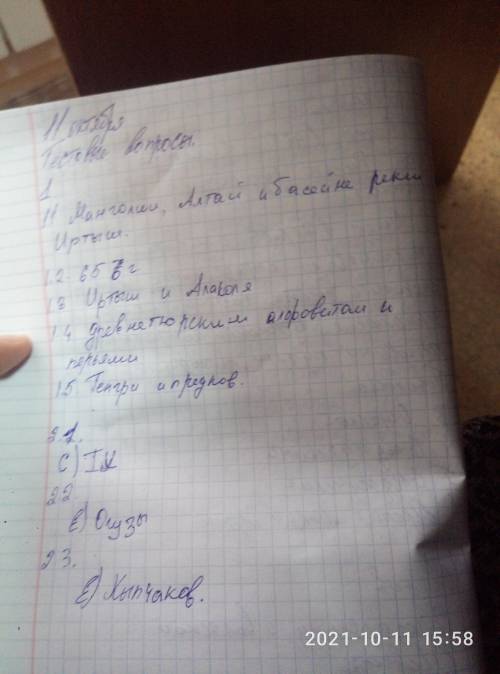 11 октября
Тестовые вопросы.
1
1.1 Манголии, Алтай и басейне реки
Иртыш.
1.2. 656 г
1.3 Иртыш и Алаколя
1.4 древнетюрским алфовитом и
перьями
1.5 Тенгри и предков.
2.1.
С) IX
2.2.
Е) Огузы
2.3.
Е) Кыпчаков.
2021-10-11 15:58